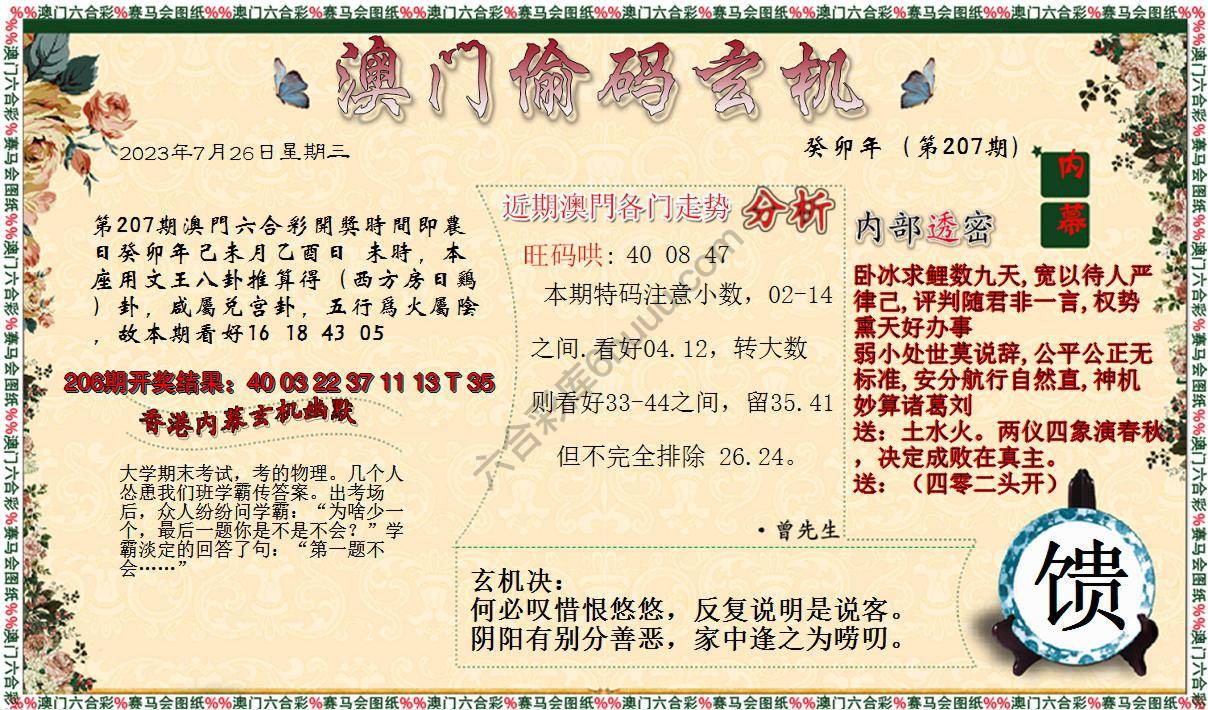 %%澳门六合彩%赛马会图纸%%澳门六合彩%赛马会图纸%%澳门六合彩%赛马会图纸%%澳门六合彩%赛马会图纸%%澳门六合彩%赛马会图纸%%澳门六合彩%赛马会图纸
澳门偷码玄机
2023年7月26日星期三
癸卯年（第207期）
第207期澳門六合彩開獎時間即農
日癸卯年己未月乙酉日 未時，本
座用文王八卦推算得（西方房日鷄
）卦，咸屬兑宫卦，五行爲火屬陰
，故本期看好16 18 43 05
206期开奖结果：40 03 22 37 11 13 T 35
香港内幕玄机幽默
大学期末考试，考的物理。几个人
怂恿我们班学霸传答案。出考场
后，众人纷纷问学霸：“为啥少一
个，最后一题你是不是不会？”学
霸淡定的回答了句：“第一题不
会……”
近期澳門各门走势 分析
旺码哄: 40 08 47
本期特码注意小数，02-14
之间.看好04.12，转大数
则看好33-44之间，留35.41
但不完全排除 26.24。
·曾先生
内幕
内部透密
卧冰求鲤数九天,宽以待人严
律己,评判随君非一言,权势
熏天好办事
弱小处世莫说辞,公平公正无
标准,安分航行自然直,神机
妙算诸葛刘
送：土水火。两仪四象演春秋
，决定成败在真主。
送：（四零二头开）
玄机决：
何必叹惜恨悠悠，反复说明是说客。
阴阳有别分善恶，家中逢之为唠叨。
馈
%%澳门六合彩%赛马会图纸%%澳门六合彩%赛马会图纸%%澳门六合彩%赛马会图纸%%澳门六合彩%赛马会图纸%%澳门六合彩%赛马会图纸%%澳门六合彩%赛马会图纸